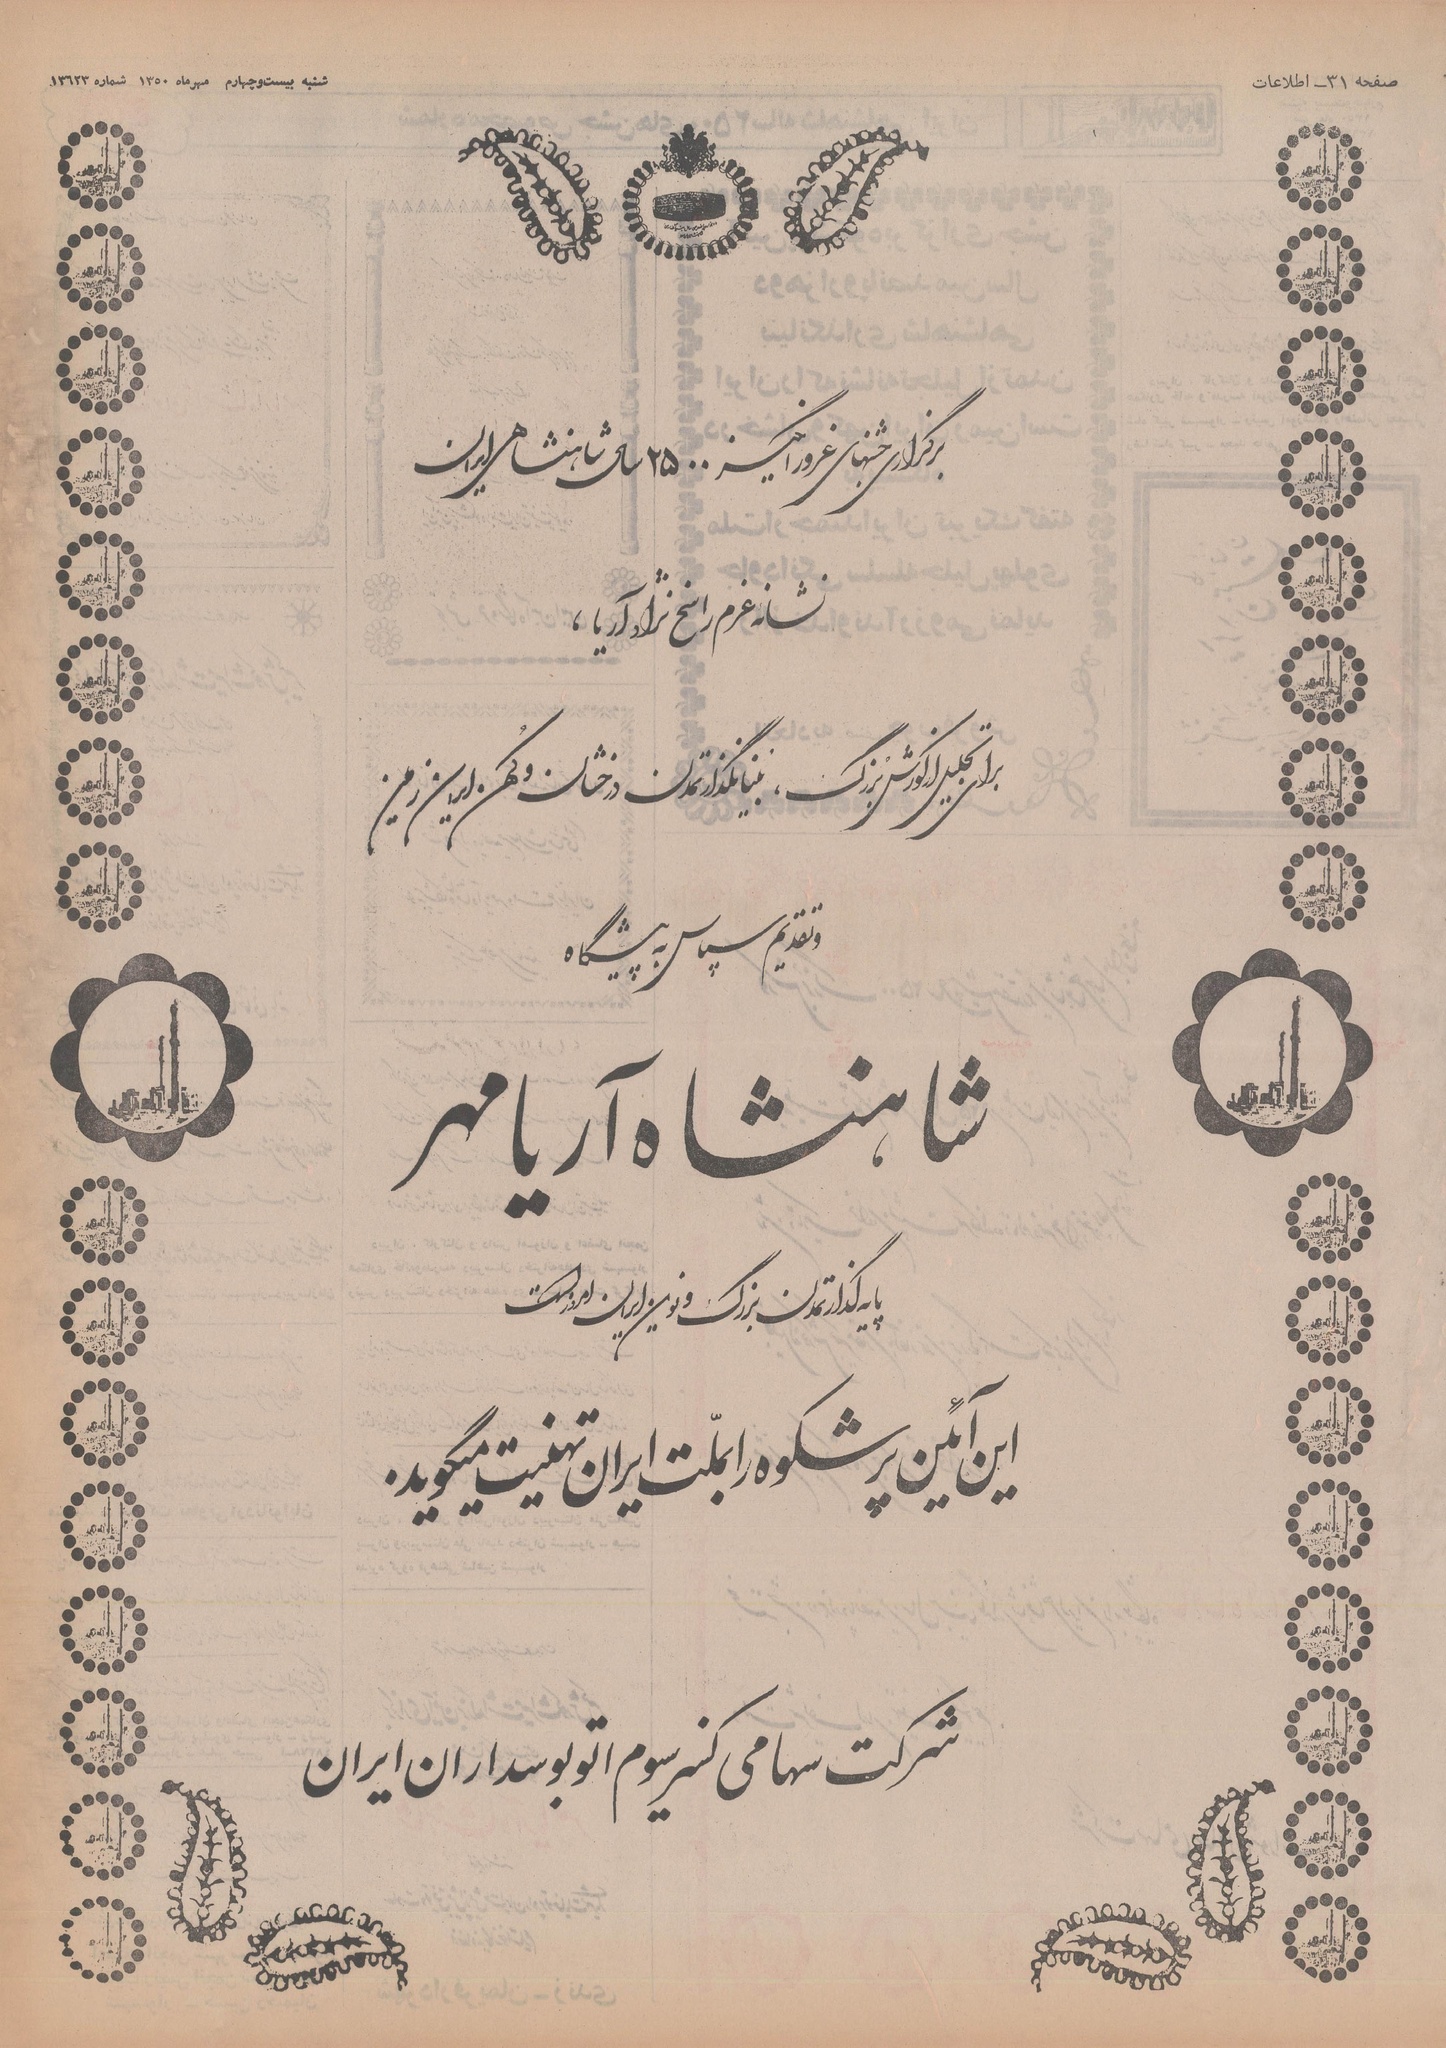 صفحه ۳۱ـ اطلاعات
شنبه بیست‌وچهارم مهرماه ۱۳۵۰ شماره ۱۳۶۲۳
برگزاری جشنهای غرورانگیز ۲۵۰۰ سالهٔ شاهنشاهی ایران
نشانهٔ عزم راسخ نژاد آریا ،
برای تجلیل از کورش بزرگ ، بنیانگذار تمدن درخشان و کهن ایران زمین
و تقدیم سپاس به پیشگاه
شاهنشاه آریامهر
پایه گذار تمدن بزرگ و نوین ایران امروز است
این آئین پرشکوه را بملّت ایران تهنیت میگوید.
شرکت سهامی کنسرسیوم اتوبوسداران ایران